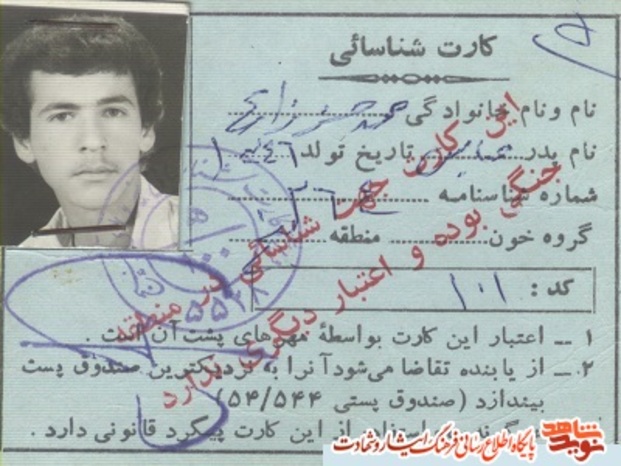 کارت شناسائی
نام و نام خانوادگی محمد حسن
نام پدر عباس تاریخ تولد
شماره شناسنامه
گروه خون منطقه
کد : ۱۰۱
۱ ــ اعتبار این کارت بواسطهٔ مهرهای پشت آن است .
۲ ــ از یابنده تقاضا می‌شود آنرا به نزدیکترین صندوق پست
بیندازد (صندوق پستی ۵۴/۵۴۴)
از این کارت پیگرد قانونی دارد .
این کارت جهت شناسائی در منطقه
جنگی بوده و اعتبار دیگری ندارد
نوید شاهد
پایگاه اطلاع رسانی فرهنگ ایثار و شهادت